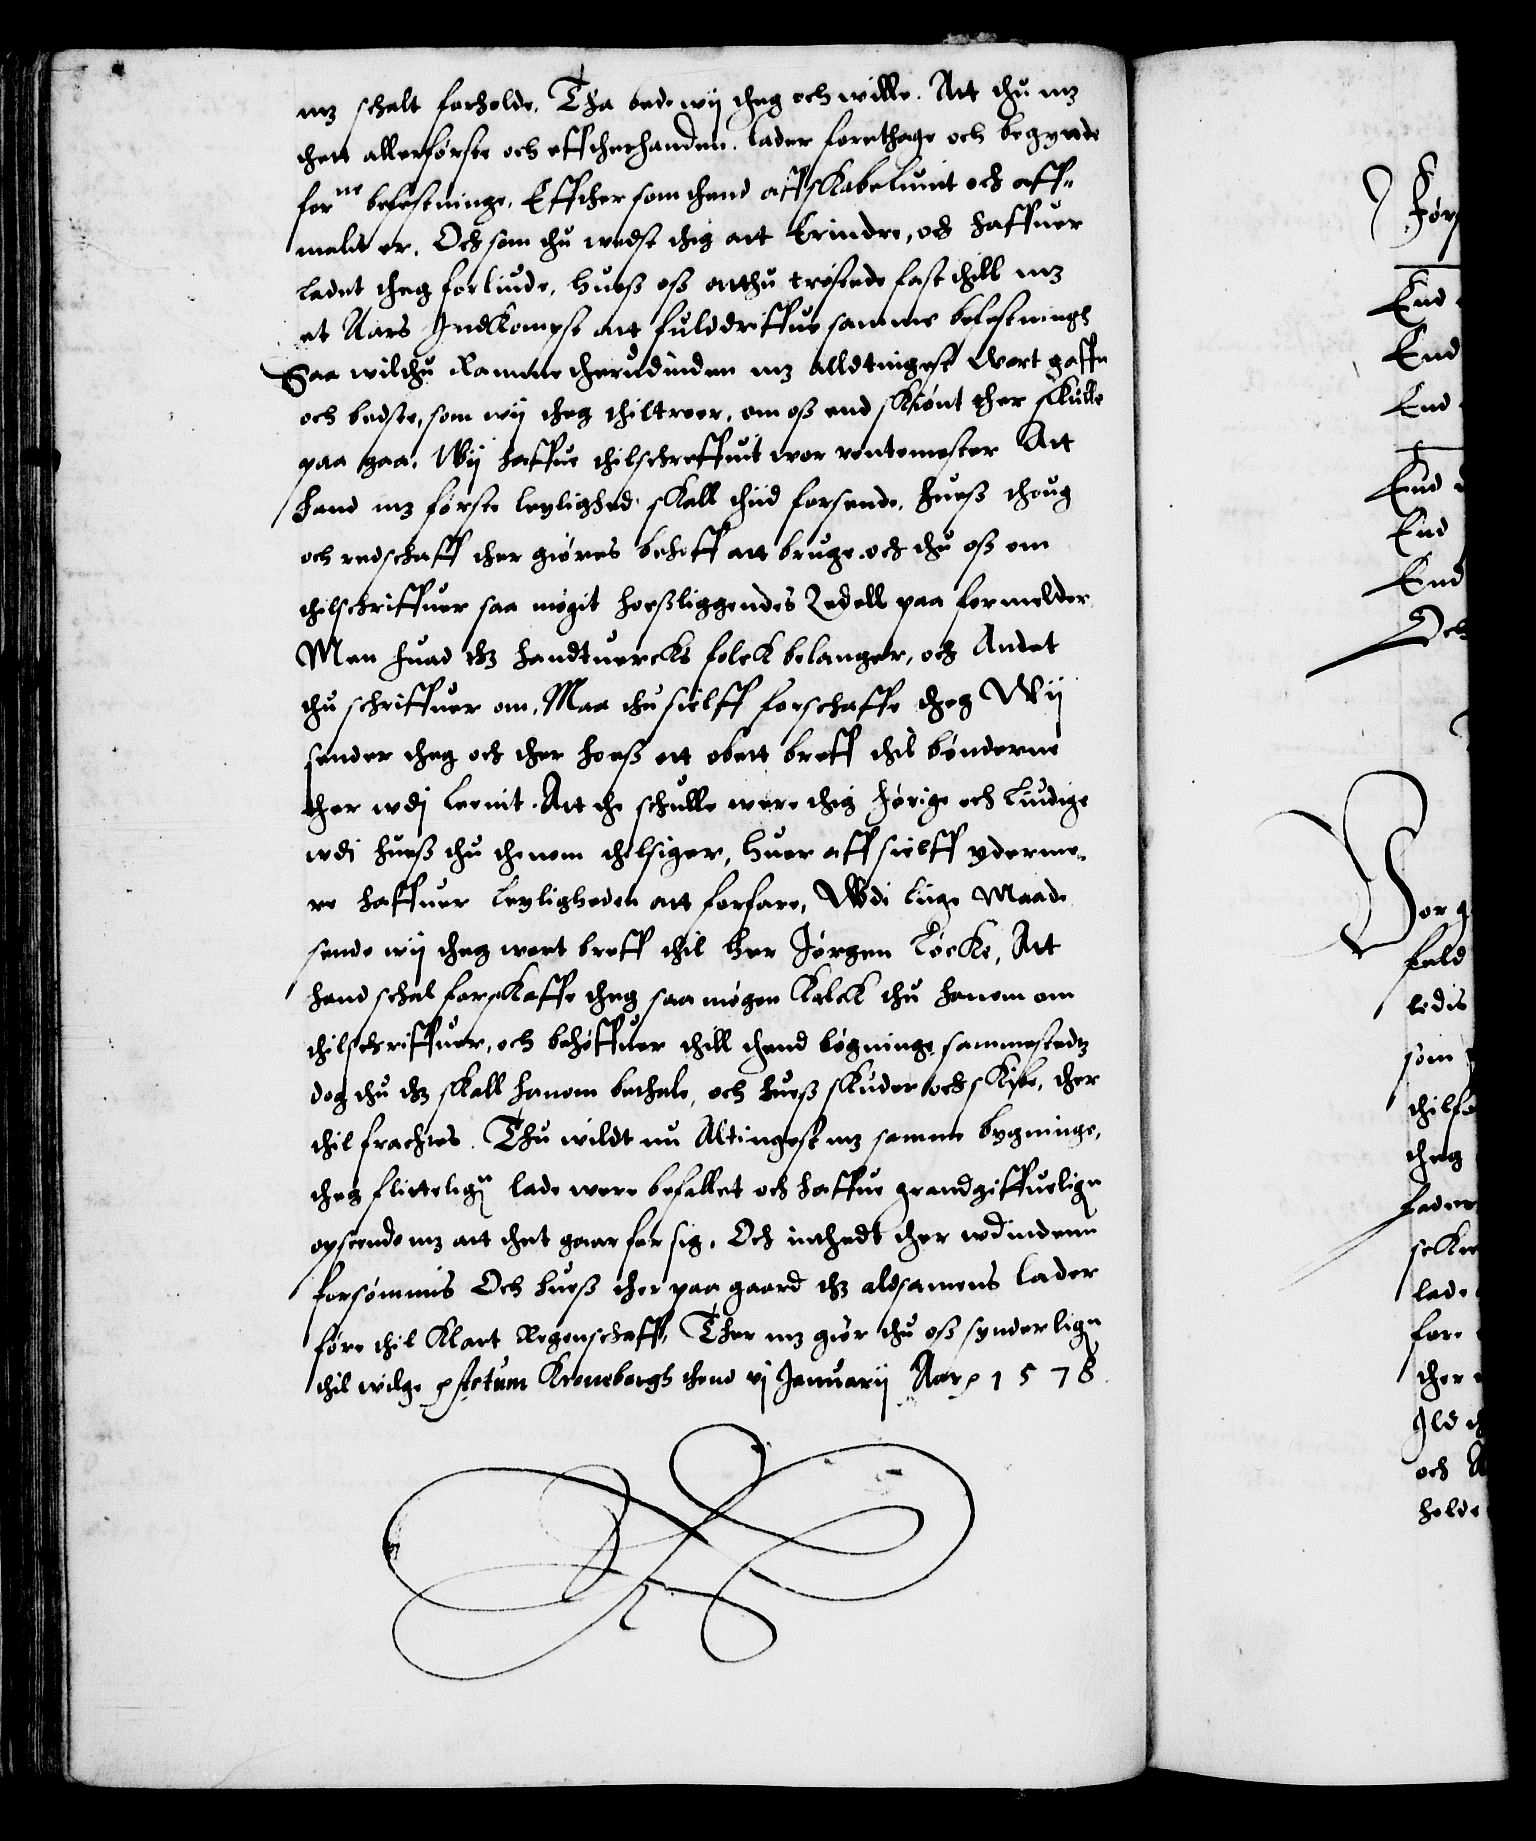 mz schalt forholde. Tha bede wij theg och wille. Att thu mz
thett allerførste och effther handen. lader forethage och begynde
forne befestninge. Effther som thend affskabelunit och aff-
malit er. Och som thu wedst thig att Erindre, och haffuer
ladet theg forliude, huess oss atthu trøstede fast thill mz
et Aars Indkompst att fulddriffue samme befestningh
Saa wilthu Ramme therudinden mz alldtingest wort gaffn
och bedste, som wij theg thiltroer, om oss end skiønt ther skulle
paa gaa. Wij haffue thilschreffuit wor rentemester Att
hand mz første leylighed skall thiid forsende, huess thoug
och redschaff ther giøres behoff att bruge och thu oss om
thilschriffuer saa møgit hoessliggendes Zedell paa formelder.
Men huad thz handtuercks folck belanger, och Andet
thu schriffuer om, Maa thu sielff forschaffe theg Wij
sender theg och ther hoess ett obett breff thil bønderne
ther wdj leenit. Att the schulle were thig hørige och liudige
wdi huess thu thenom thilsiger, huer aff sielff yderme-
re haffuer leyligheden att forfare, Wdi liige Maade
sende wij theg wort breff thil her Jørgen Løcke, Att
hand schal forskaffe theg saa møgen Kalck thu hanom om
thilschriffuer, och behøffuer thill thend bøgninge sammestedtz
dog thu thz skall hanom bethale, och huess skuder och skibe, ther
thil frachtes. Thu wildt nu Altingest mz samme bygninge,
theg flitteligen lade were befallet och haffue grandgiffueligen
opseende mz att thet gaar for sig. Och inthedt ther wdindenn
forsømmis Och huess ther paa gaard thz aldsamens lader
føre thil Klart Regenschaff, Ther mz giør thu oss synderligen
thil wilge Actum Kroneborgh thend vj Januarij Aar 1578.
Vor g
feld
ledis
som
thilfø
theg
fader
lade
fore
ther
Ild
och
holde
Før
End
End
End
End
End
End
Och